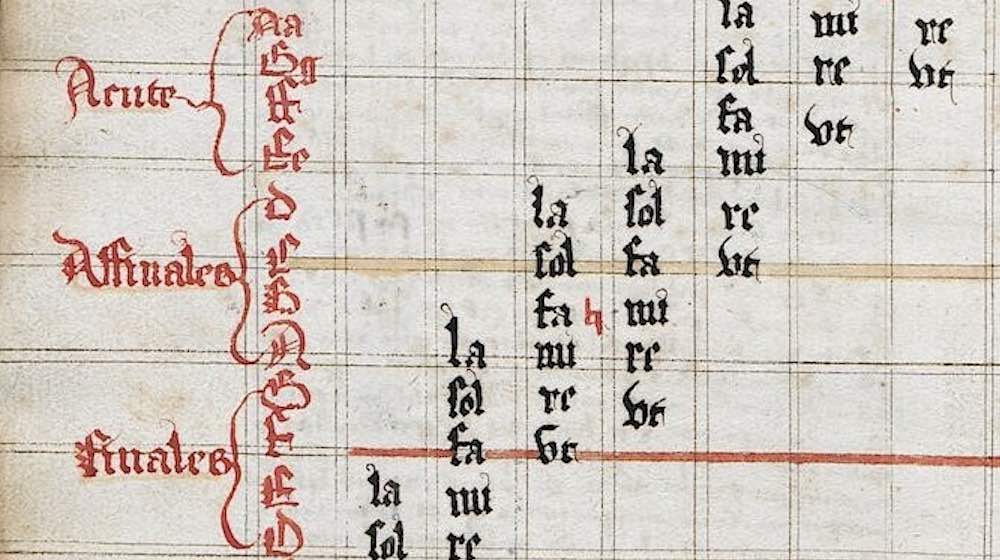 Aa la mi re
Gg sol re vt
Acute ff fa vt
Ee la mi
d la sol re
Affinales C sol fa vt
B fa ♮ mi
A la mi re
G sol re vt
finales F fa vt
E la mi
D sol re